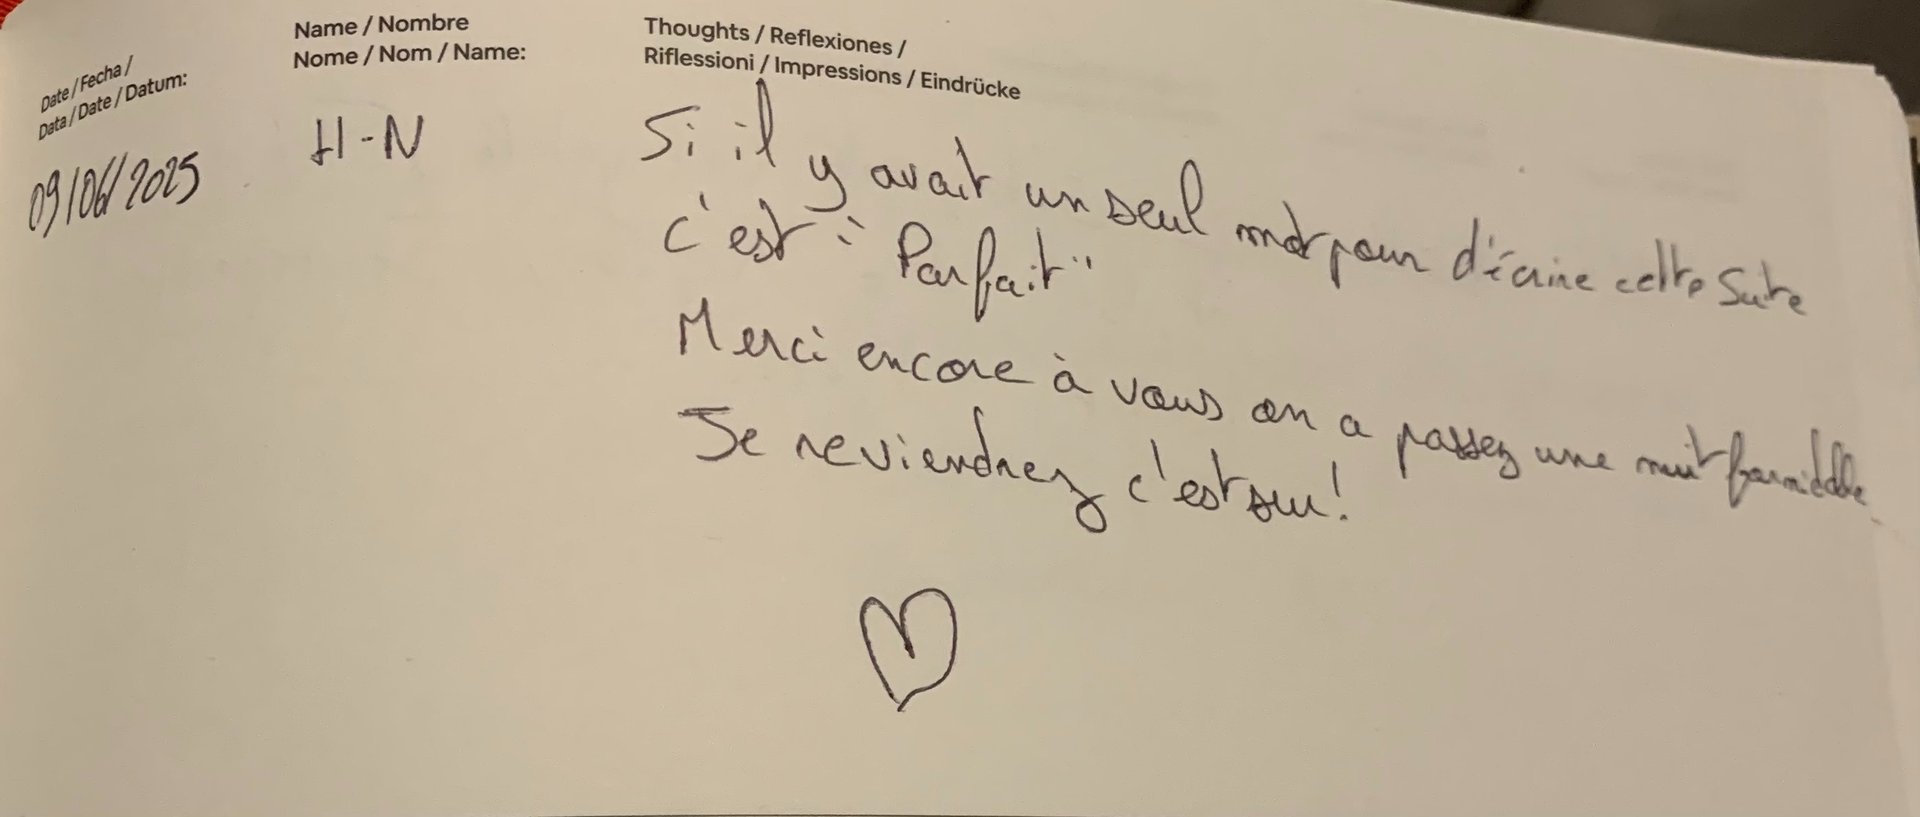 Date / Fecha /
Data / Date / Datum:
09/06/2025
Name / Nombre
Nome / Nom / Name:
H-N
Thoughts / Reflexiones /
Riflessioni / Impressions / Eindrücke
Si il y avait un seul mot pour d'écrire cette Suite
c'est " Parfait"
Merci encore à vous on a passez une nuit formidable
Je reviendrez c'est sur !